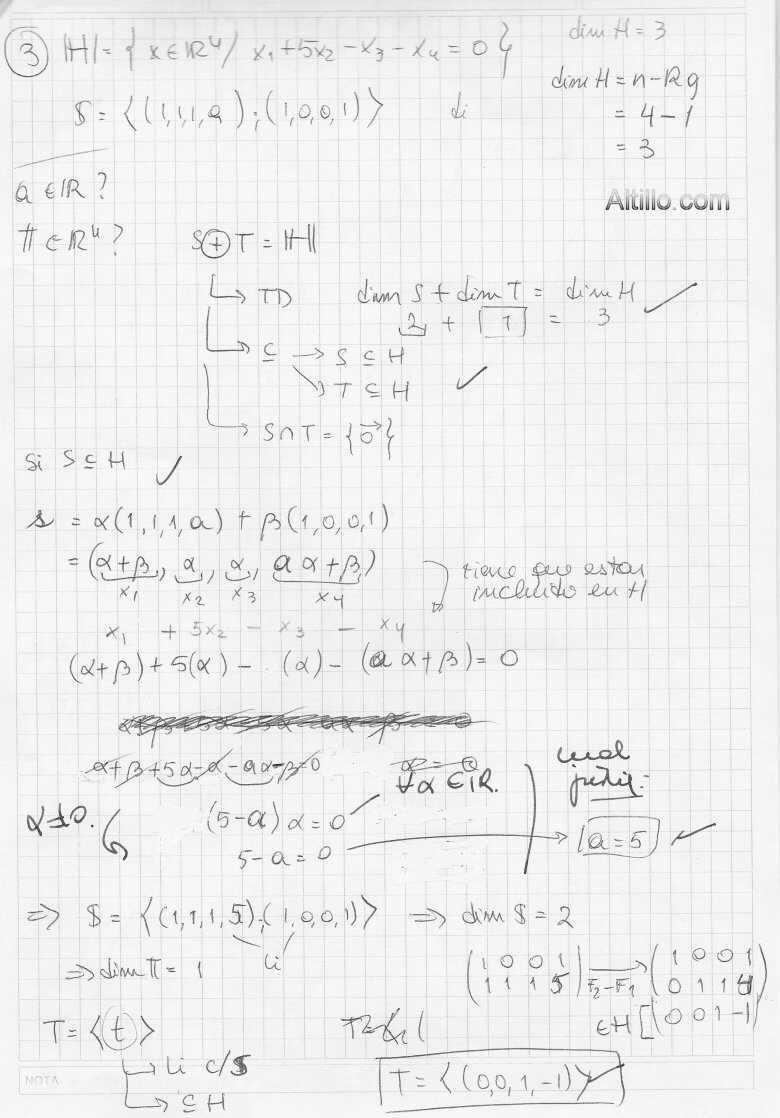 3 H = { x ∈ ℝ⁴ / x₁ + 5x₂ - x₃ - x₄ = 0 }
dim H = 3
S = ⟨(1,1,1,a);(1,0,0,1)⟩
di
dim H = n - Rg
= 4 - 1
= 3
a ∈ ℝ ?
Altillo.com
T ∈ ℝ⁴ ?
S ⊕ T = H
→ TD dim S + dim T = dim H ✓
2 + 1 = 3
→ ⊆ → S ⊆ H
→ T ⊆ H ✓
→ S ∩ T = {0⃗}
Si S ⊆ H ✓
s = α(1,1,1,a) + β(1,0,0,1)
= (α+β, α, α, aα+β)
x₁ x₂ x₃ x₄
tiene que estar
incluido en H
x₁ + 5x₂ - x₃ - x₄
(α+β) + 5(α) - (α) - (aα+β) = 0
α+β+5α-α-aα-β=0
∀α ∈ ℝ.
mal
justif:
α≠0.
(5-a) α = 0
5-a = 0
a = 5 ✓
⇒ S = ⟨(1,1,1,5);(1,0,0,1)⟩ ⇒ dim S = 2
li
⇒ dim T = 1
(1 0 0 1
1 1 1 5)
F₂-F₁
→
(1 0 0 1
0 1 1 4
0 0 1 -1)
∈ H
T = ⟨t⟩
→ Li c/S
→ ⊆ H
T = ⟨(0,0,1,-1)⟩ ✓
NOTA